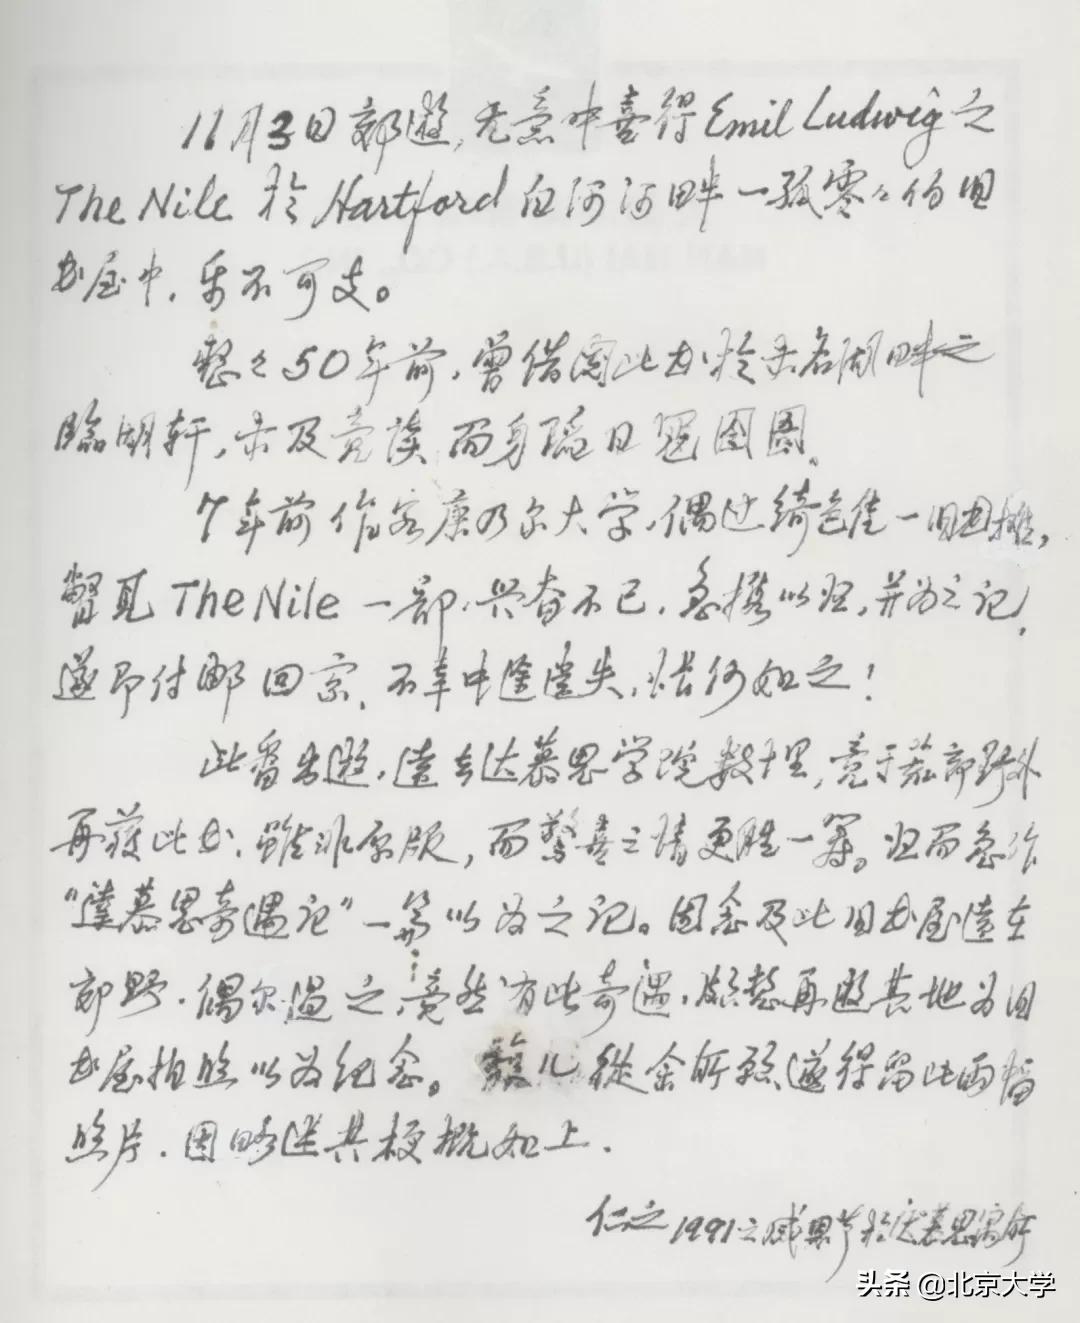 11月3日郊游，无意中喜得Emil Ludwig之
The Nile 於 Hartford 白河河畔一孤零々的旧
书屋中，乐不可支。
整々50年前，曾借阅此书於未名湖畔之
临湖轩，未及竟读而身陷日寇囹圄。
7年前作客康乃尔大学，偶过绮色佳一旧书摊，
瞥见 The Nile 一部，兴奋不已，急携以归，并为之记，
遂即付邮回京，不幸中途遗失，怅何如之！
此番出游，远去达慕思学院数十里，竟于荒郊野外
再获此书，虽非原版，而惊喜之情更胜一筹。归而急作
“達慕思奇遇记”一篇以为之记。因念及此旧书屋远在
郊野，偶尔过之，竟然有此奇遇，颇愁再遊其地为旧
书屋拍照以为纪念。馥儿從余所願遂得留此两幅
照片，因略述其梗概如上．
仁之1991之感恩节於达慕思寓所
头条 @北京大学